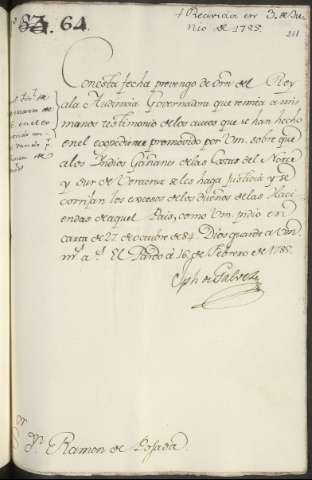 83. 64.
+ Recivida en 3. de Ju-
nio de 1785.
211
Con esta fecha prevengo de orn del Rey
ala Audiencia Governadora que remita a mis
manos testimonio de los autos que se han hecho
en el expediente promovido por Vm. sobre que
a los Yndios Gañanes de las Costas del Norte
y Sur de Veracruz se les haga Justicia y se
corrijan los excesos de los dueños de las Haci-
endas de aquel Pais, como Vm. pidio en
carta de 27 de octubre de 84. Dios guarde a Vm.
m.s a.s El Pardo a 16 de Febrero de 1785.
Jph de Galvez
S.or D.n Ramon de Posada.